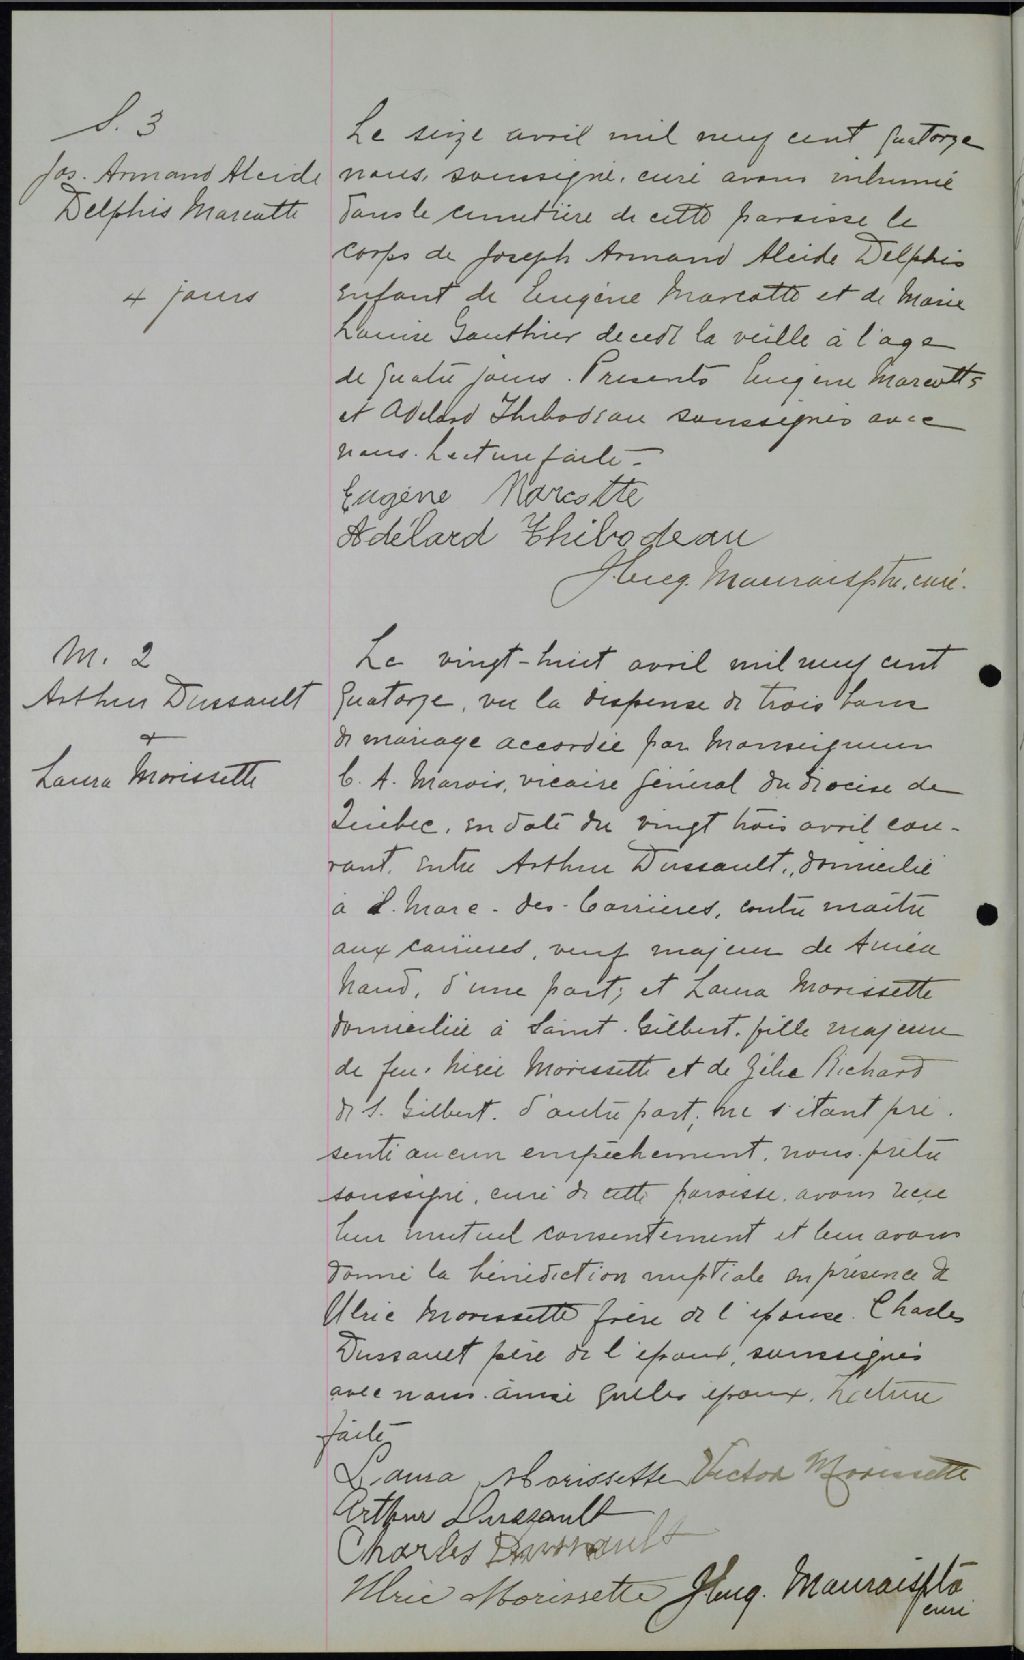 S. 3
Jos. Armand Alcide
Delphis Marcotte
4 jours
Le seize avril mil neuf cent quatorze
nous, soussigné, curé avons inhumé
dans le cimetière de cette paroisse le
corps de Joseph Armand Alcide Delphis
enfant de Eugène Marcotte et de Marie
Louise Gauthier decedé la veille à l'age
de quatre jours. Presents Eugène Marcotte
et Adelard Thibodeau soussignés avec
nous. Lecture faite.
Eugène Marcotte
Adélard Thibodeau
Maurais ptre, curé.
M. 2
Arthur Dussault
+
Laura Morissette
Le vingt-huit avril mil neuf cent
quatorze, vu la dispense de trois bans
de mariage accordée par Monseigneur
C. A. Marois, vicaire général du diocèse de
Québec, en date du vingt trois avril cou-
rant, entre Arthur Dussault, domicilié
à S. Marc-des-Carrières, contre maître
aux carrières, veuf majeur de
Naud, d'une part; et Laura Morissette
domiciliée à Saint-Gilbert, fille majeure
de feu Morissette et de Zélie Richard
de S. Gilbert, d'autre part; ne s'étant pré-
senté aucun empêchement, nous, prêtre
soussigné, curé de cette paroisse, avons reçu
leur mutuel consentement et leur avons
donné la bénédiction nuptiale en présence de
Ulric Morissette frère de l'épouse, Charles
Dussault père de l'époux, soussignés
avec nous ainsi que les époux. Lecture
faite
Laura Morissette Victor Morissette
Arthur Dussault
Charles Dussault
Ulric Morissette Maurais ptre
curé